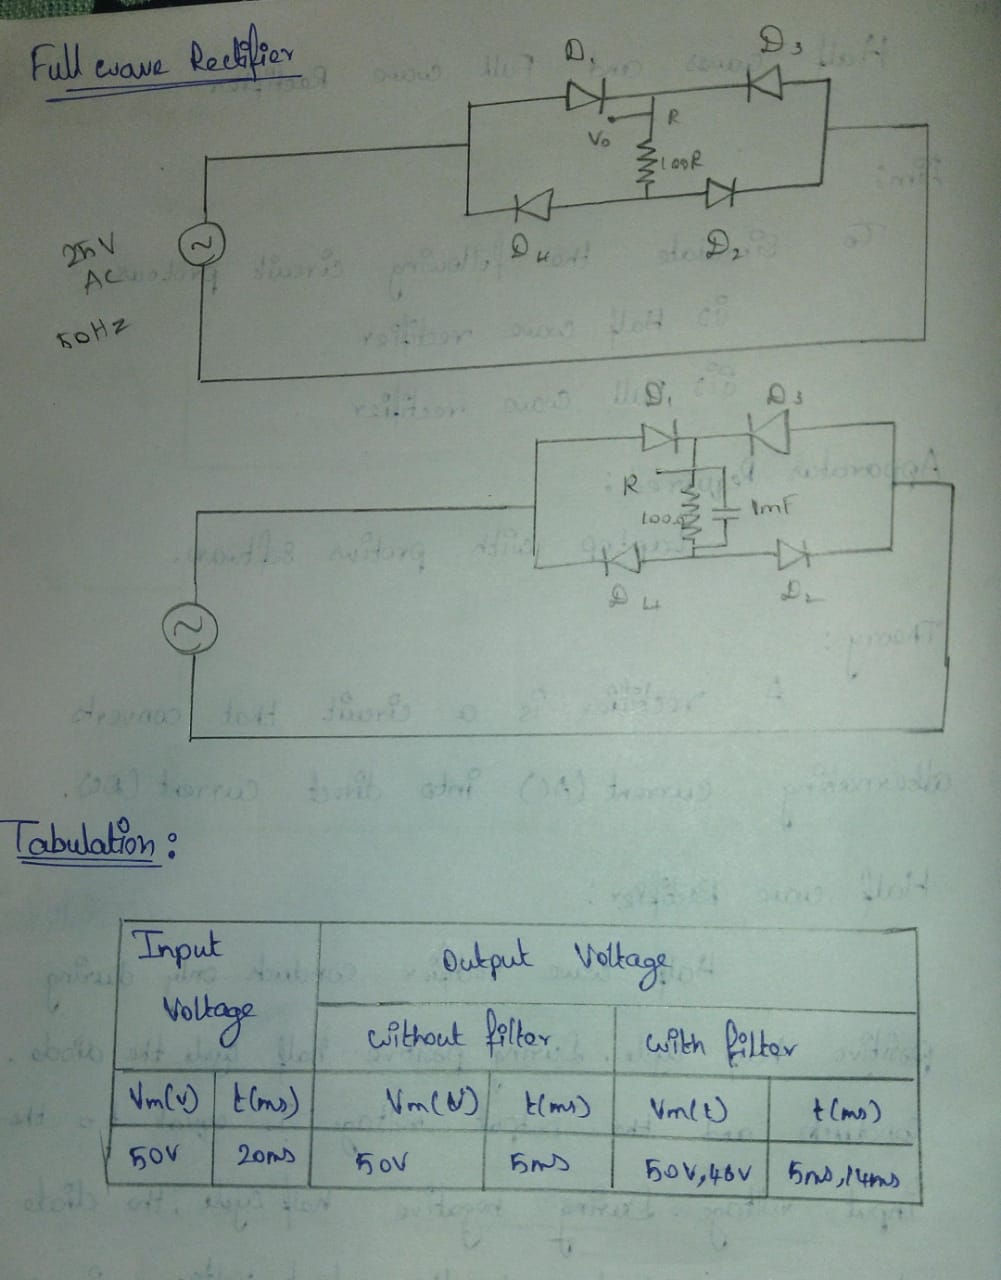 Full wave Rectifier
D1
D3
Vo
R
100R
D4
D2
25V
AC
50Hz
D1
D3
R
100R
1mF
D4
D2
Tabulation:
Input Voltage
Output Voltage
without filter
with filter
Vm(V) t(ms) Vm(V) t(ms) Vm(t) t(ms)
50V 20ms 50V 5ms 50V,46V 5ms,14ms